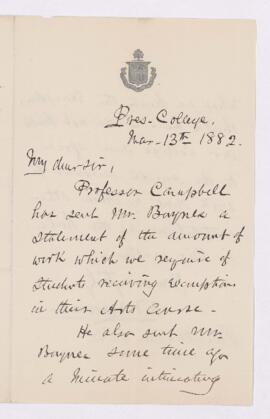 Pres. College,
Mar. 13th 1882.
My dear Sir,
Professor Campbell
has sent Mr. Baynes a
statement of the amount of
work which we require of
students receiving exemptions
in their Arts Course.
He also sent Mr.
Baynes some time ago
a Minute intimating